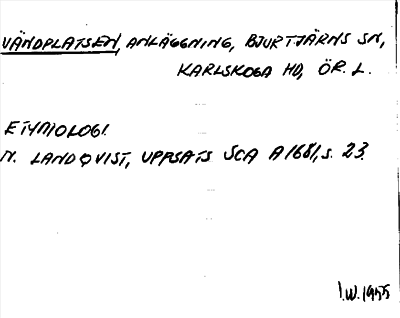 VÄNDPLATSEN, ANLÄGGNING, BJURTJÄRNS SN,
KARLSKOGA HD, ÖR. L.
ETYMOLOGI.
N. LANDQVIST, UPPSATS SOA A1681, S. 23.
I.W. 1955